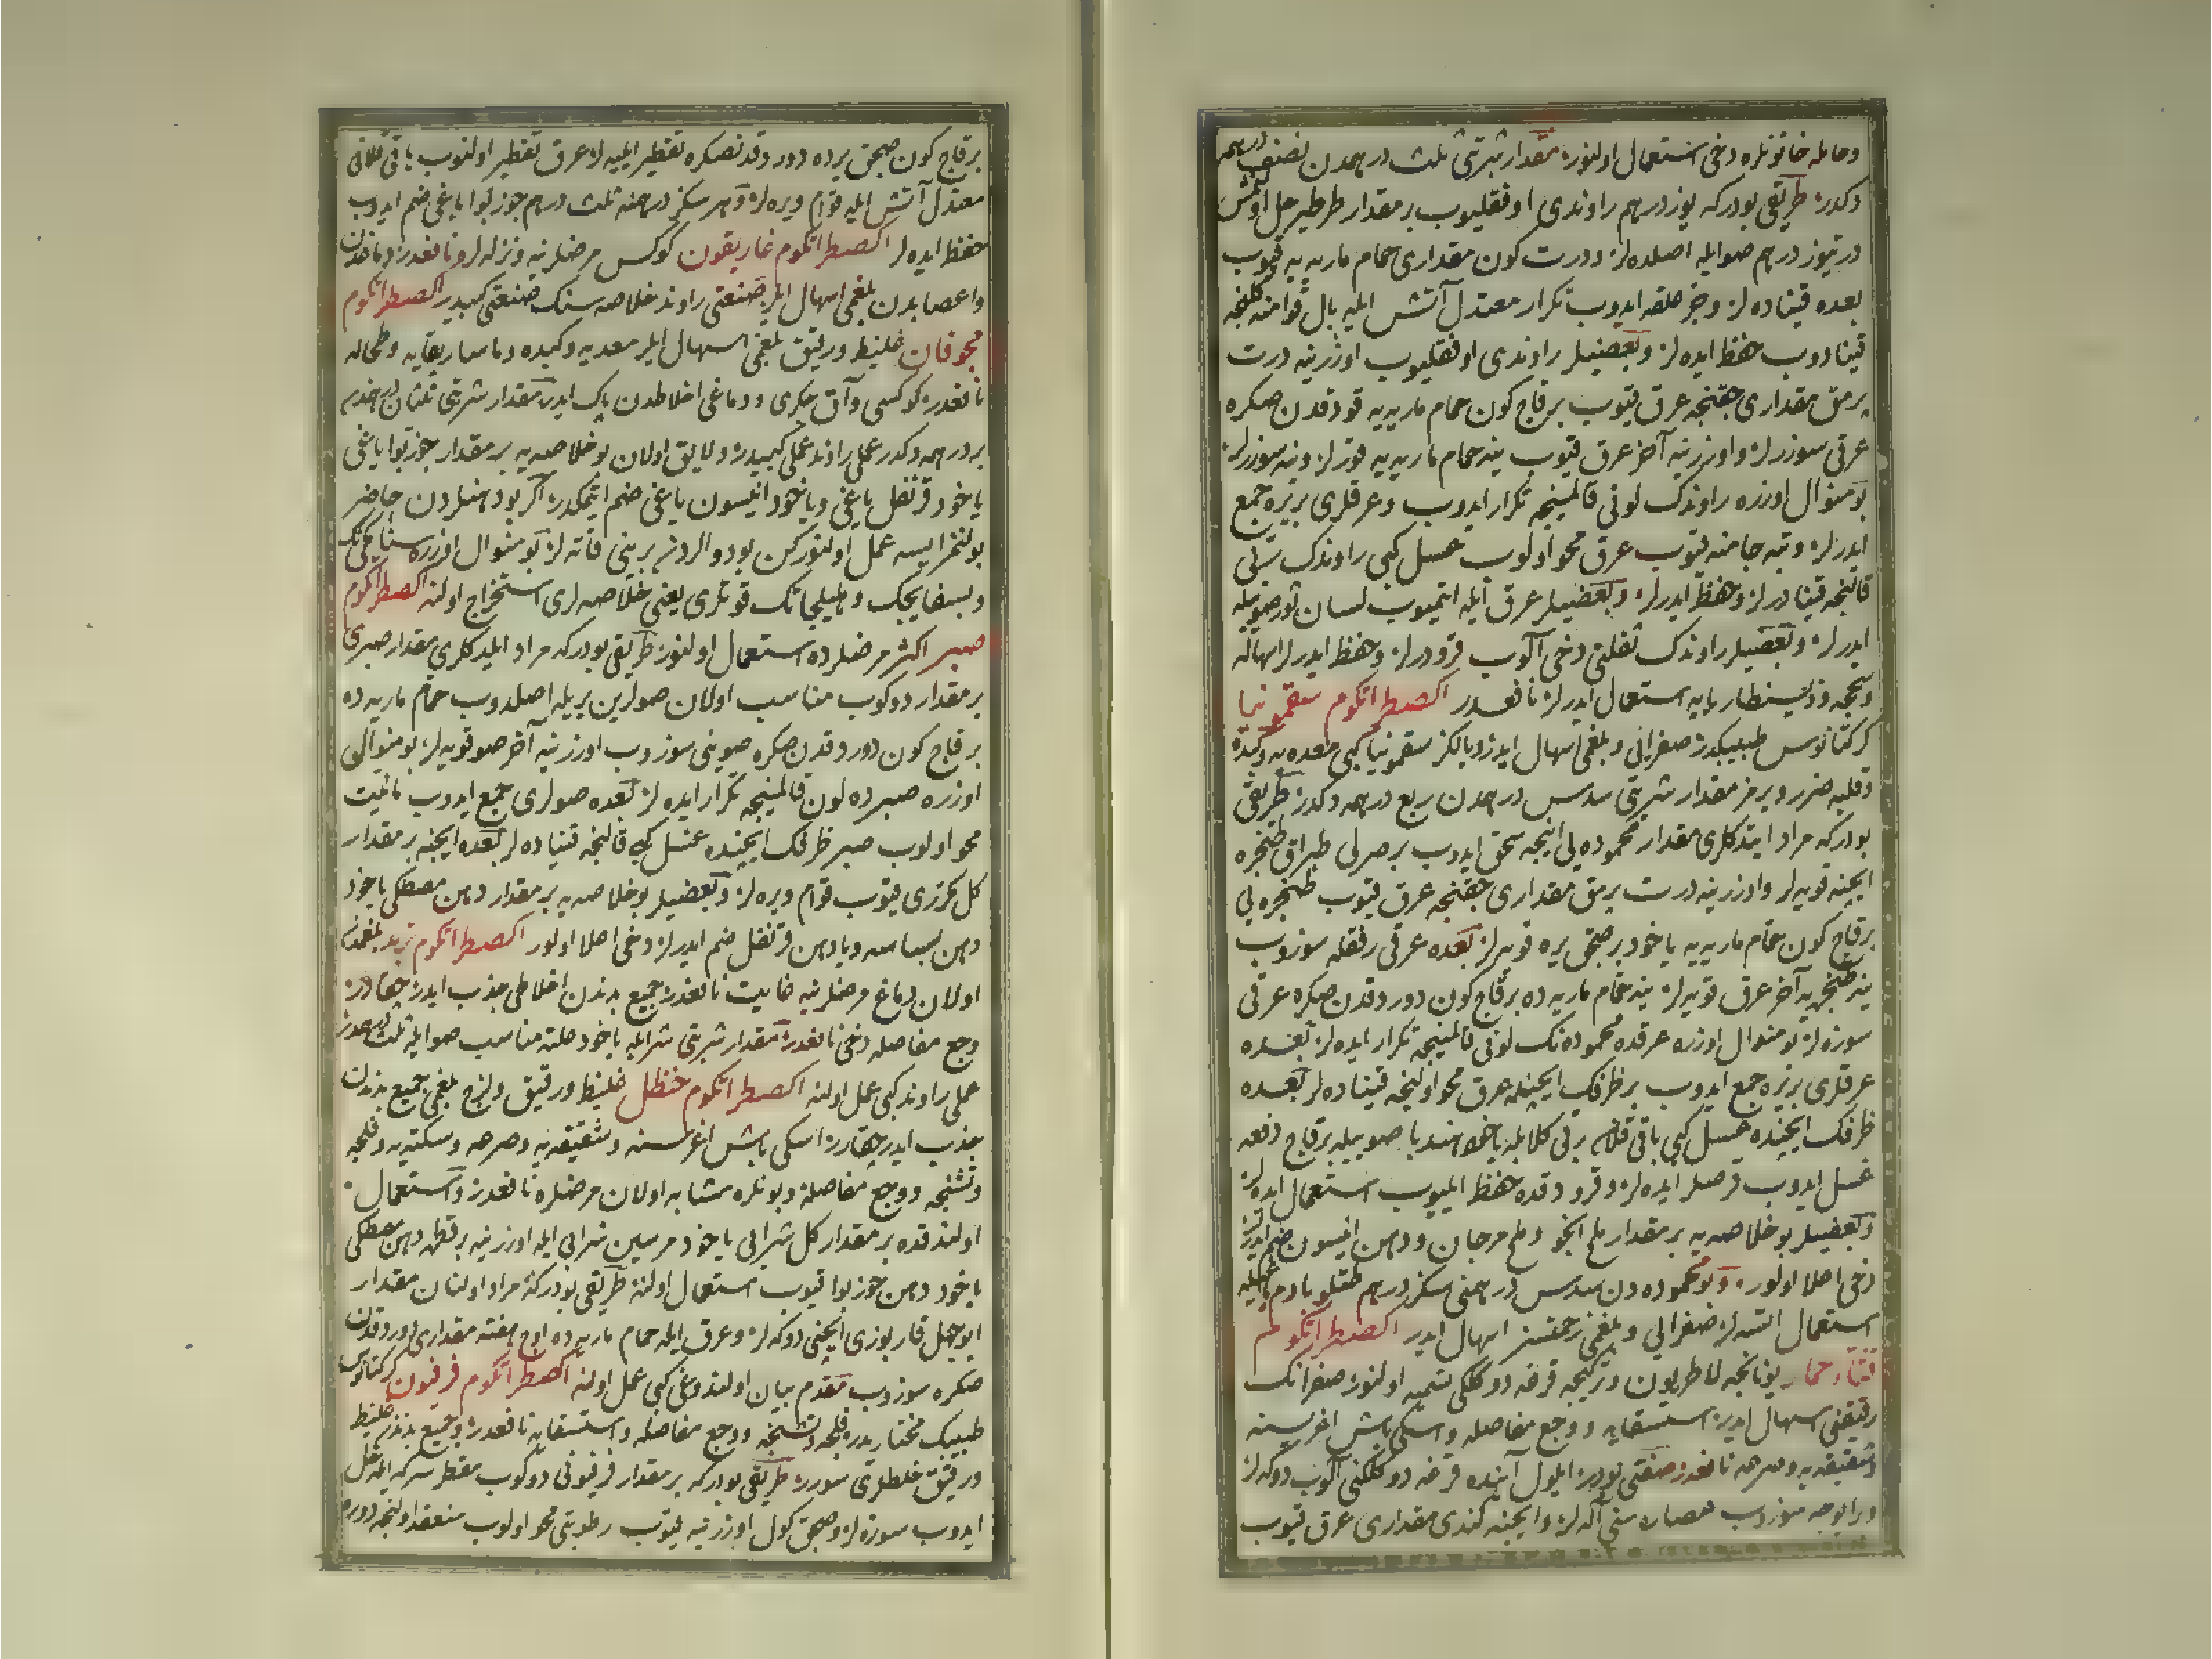 وحامله خاتونلره دخی استعمال اولنور مقدار شربتی ثلث درهمدن نصف درهمه
دکدر طریقی بودرکه یوز درهم راوندی اوفقلیوب بر مقدار طرطیر
درتیوز درهم صو ایله اصلده‌لر ودرت کون مقداری حمام ماریه‌یه قیوب
بعده قیناده‌لر وجزء حلقه ایدوب تکرار معتدل آتش ایله بال قوامنه کلنجه
قینادوب حفظ ایده‌لر وبعضیلر راوندی اوفقلیوب اوزرینه درت
برمق مقداری چقنجه عرق قیوب برقاج کون حمام ماریه‌یه قودقدن صکره
عرقی سوزرلر واوزرینه آخر عرق قیوب ینه حمام ماریه‌یه قورلر وینه سوزرلر
بو منوال اوزره راوندک لونی قالمینجه تکرار ایدوب وعرقلری بریره جمع
ایدرلر وینه جامنه قیوب عرق محو اولوب عسل کبی راوندک
قالنجه قینادرلر وحفظ ایدرلر وبعضیلر عرق ایله ایتمیوب لسان ثور صوییله
ایدرلر وبعضیلر راوندک ثفلنی دخی آلوب قرودرلر وحفظ ایدرلر اسهاله
وسحجه وذیسنطاریایه استعمال ایدرلر نافعدر اکصطراتکوم سقمونیا
کرکتانوس طبیبکدر صفرایی وبلغمی اسهال ایدر ویالکز سقمونیا کبی معده‌یه وکبده
وقلبه ضرر ویرمز مقدار شربتی سدس درهمدن ربع درهمه دکدر طریقی
بودرکه مراد ایتدکلری مقدار محموده‌یی اینجه سحق ایدوب بر صرلی طبراق طنجره
ایچنه قویه‌لر واوزرینه درت برمق مقداری چقنجه عرق قیوب طنجره‌یی
برقاج کون حمام ماریه‌یه یاخود بر صجق یره قویه‌لر بعده عرقی رفقله سوزوب
ینه طنجره‌یه آخر عرق قویه‌لر ینه حمام ماریه‌ده برقاج کون دوردقدن صکره عرقی
سوزه‌لر بو منوال اوزره عرقده محموده‌نک لونی قالمینجه تکرار ایده‌لر بعده
عرقلری بریره جمع ایدوب بر ظرفک ایچنده عرق محو اولنجه قیناده‌لر بعده
ظرفک ایچنده عسل کبی باقی قلانی برقی کلابله یاخود هندبا صوییله برقاج دفعه
غسل ایدوب قرصلر ایده‌لر وقرودقده حفظ ایلیوب استعمال ایده‌لر
وبعضیلر بو خلاصه‌یه بر مقدار ملح انجو وملح مرجان ودهن انیسون ضم ایدرلر
دخی اعلا اولور وبو محموده‌دن سدس درهمنی سکز درهم طتلو بادم یاغیله
استعمال اتسه‌لر صفرایی وبلغمی زحمتسز اسهال ایدر اکصطراتکوم
قثاء حمار یونانجه لاطریون وترکیجه قرغه دوکلکی تسمیه اولنور صفرانک
رقیقنی اسهال ایدر استسقایه ووجع مفاصله واسکی باش اغریسنه
وشقیقه‌یه وصرعه نافعدر صنعتی بودر ایلول آینده قرغه دوکلکنی آلوب دوکه‌لر
سوزوب عصاره‌سنی آله‌لر وایچنه کندی مقداری عرق قیوب
برقاج کون صجق یرده دوردقدنصکره تقطیر ایلیه‌لر عرق تقطیر اولنوب باقی قلانی
معتدل آتش ایله قوام ویره‌لر وهر سکز درهمنه ثلث درهم جوز بوا یاغی ضم ایدوب
حفظ ایده‌لر اکصطراتکوم غاریقون کوکس مرضلرینه ونزله‌لره نافعدر ودماغدن
واعصابدن بلغمی اسهال ایلر صنعتی راوند خلاصه‌سنک صنعتی کبیدر اکصطراتکوم
مجوقان غلیظ ورقیق بلغمی اسهال ایلر معدیه وکبده وماساریقایه وطحاله
نافعدر کوکسی وآق جکری ودماغی اخلاطدن پاک ایدر مقدار شربتی ثلثان درهمدن
بر درهمه دکدر عملی راوند عملی کبیدر ولایق اولان بو خلاصه‌یه بر مقدار جوز بوا یاغی
یاخود قرنفل یاغی ویاخود انیسون یاغی ضم ایتمکدر اکر بو دهنلردن حاضر
بولنمز ایسه عمل اولنورکن بو دوالردن برینی قاته‌لر بو منوال اوزره سنا مکی‌نک
وبسفایجک وهلیله‌جاتک قوتلری یعنی خلاصه‌لری استخراج اولنه اکصطراتکوم
صبر اکثر مرضلرده استعمال اولنور طریقی بودرکه مراد ایلدکلری مقدار صبری
بر مقدار دوکوب مناسب اولان صولرین بریله اصلدوب حمام ماریه‌ده
برقاج کون دوردقدنصکره صویینی سوزوب اوزرینه آخر صو قویه‌لر بو منوالی
اوزره صبرده لون قالمینجه تکرار ایده‌لر بعده صولری جمع ایدوب مائیت
محو اولوب صبر ظرفک ایچنده عسل کبی قالنجه قیناده‌لر بعده ایچنه بر مقدار
کل مکرری قیوب قوام ویره‌لر وبعضیلر بو خلاصه‌یه بر مقدار دهن مصطکی یاخود
دهن بسباسه ویا دهن قرنفل ضم ایدرلر دخی اعلا اولور اکصطراتکوم تربد بلغمدن
اولان دماغ مرضلرینه غایت نافعدر جمیع بدندن اخلاطی جذب ایدر چقاردر
وجع مفاصله دخی نافعدر مقدار شربتی شرابله یاخود علته مناسب صو ایله ثلث درهمدر
عملی راوند کبی عمل اولنه اکصطراتکوم حنظل غلیظ ورقیق ولزج بلغمی جمیع بدندن
جذب ایدر چقاررر اسکی باش اغریسنه وشقیقه‌یه وصرعه وسکتیه وفلجه
وتشنجه ووجع مفاصله وبونلره مشابه اولان مرضلره نافعدر واستعمال
اولندقده بر مقدار کل شرابی یاخود مرسین شرابی ایله اوزرینه بر قطره دهن مصطکی
یاخود دهن جوز بوا قیوب استعمال اولنه طریقی بودرکه مراد اولنان مقدار
ابوجهل قاربوزی ایچنی دوکه‌لر وعرق ایله حمام ماریه‌ده اوج هفته مقداری دوردقدن
صکره سوزوب مقدم بیان اولندوغی کبی عمل اولنه اکصطراتکوم فرفیون کرکتانوس
طبیبک مختاریدر فلجه وتشنجه ووجع مفاصله واستسقایه نافعدر وجمیع بدندن غلیظ
ورقیق خلطلری سورر طریقی بودرکه بر مقدار فرفیونی دوکوب مقطر سرکه ایله حل
ایدوب سوزه‌لر وصجق کول اوزرینه قیوب رطوبتی محو اولوب منعقد اولنجه دوره